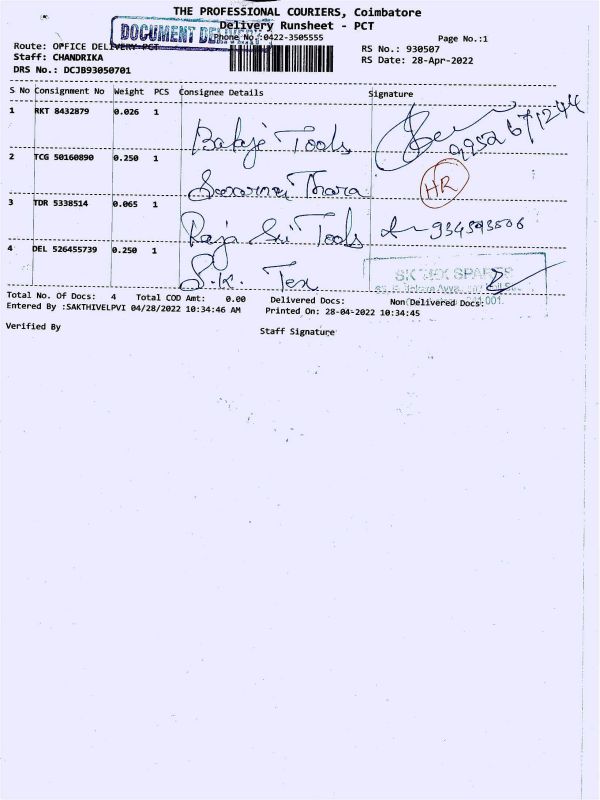 THE PROFESSIONAL COURIERS, Coimbatore
Delivery Runsheet - PCT
DOCUMENT DELIVERY
Phone No.:0422-3505555
Page No.:1
Route: OFFICE DELIVERY-PCT
RS No.: 930507
Staff: CHANDRIKA
RS Date: 28-Apr-2022
DRS No.: DCJB93050701
S No Consignment No Weight PCS Consignee Details Signature
1 RKT 8432879 0.026 1 Balaji Tools 9952671244
2 TCG 50160890 0.250 1 Thara HR
3 TDR 5338514 0.065 1 Raja Sri Tools
4 DEL 526455739 0.250 1 S.K. Tex
SK TEX SPARES
Total No. Of Docs: 4 Total COD Amt: 0.00 Delivered Docs: Non Delivered Docs:
Entered By :SAKTHIVELPVI 04/28/2022 10:34:46 AM Printed On: 28-04-2022 10:34:45
Verified By Staff Signature